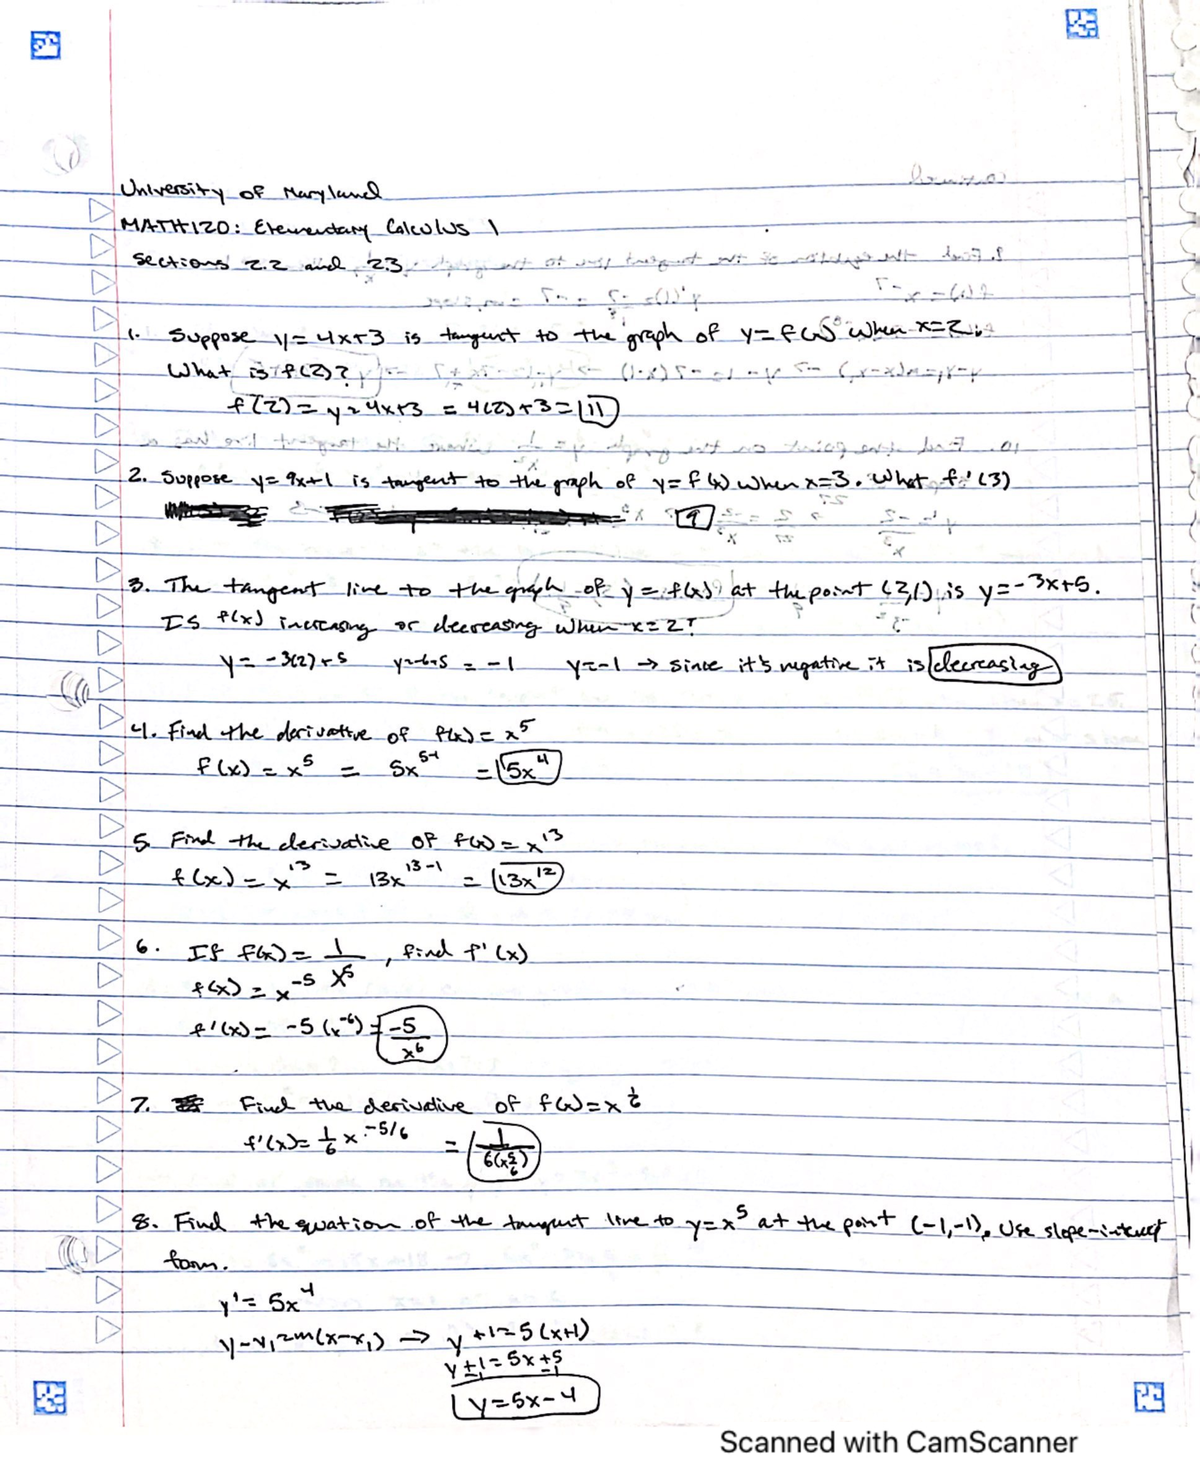 University of Maryland
MATH120: Elementary Calculus 1
Sections 2.2 and 2.3
1. Suppose y=4x+3 is tangent to the graph of y=f(x) when x=2.
What is f(2)?
f(2)= y=4x+3 = 4(2)+3= 11
2. Suppose y=9x+1 is tangent to the graph of y=f(x) when x=3. What f'(3)
9
3. The tangent line to the graph of y=f(x) at the point (2,1) is y=-3x+5.
Is f(x) increasing or decreasing when x=2?
y=-3(2)+5 y=-6+5 = -1 y=-1 → since it's negative it is decreasing
4. Find the derivative of f(x)=x^5
f(x)=x^5 = 5x^5-1 = 5x^4
5. Find the derivative of f(x)=x^13
f(x)=x^13 = 13x^13-1 = 13x^12
6. If f(x)=1/x^5, find f'(x)
f(x)=x^-5
f'(x)= -5(x^-6) = -5/x^6
7. Find the derivative of f(x)=x^1/6
f'(x)=1/6 x^-5/6 = 1/6(x^5/6)
8. Find the equation of the tangent line to y=x^5 at the point (-1,-1). Use slope-intercept
form.
y'=5x^4
y-y₁=m(x-x₁) → y+1=5(x+1)
y+1=5x+5
-1 -1
y=5x-4
Scanned with CamScanner